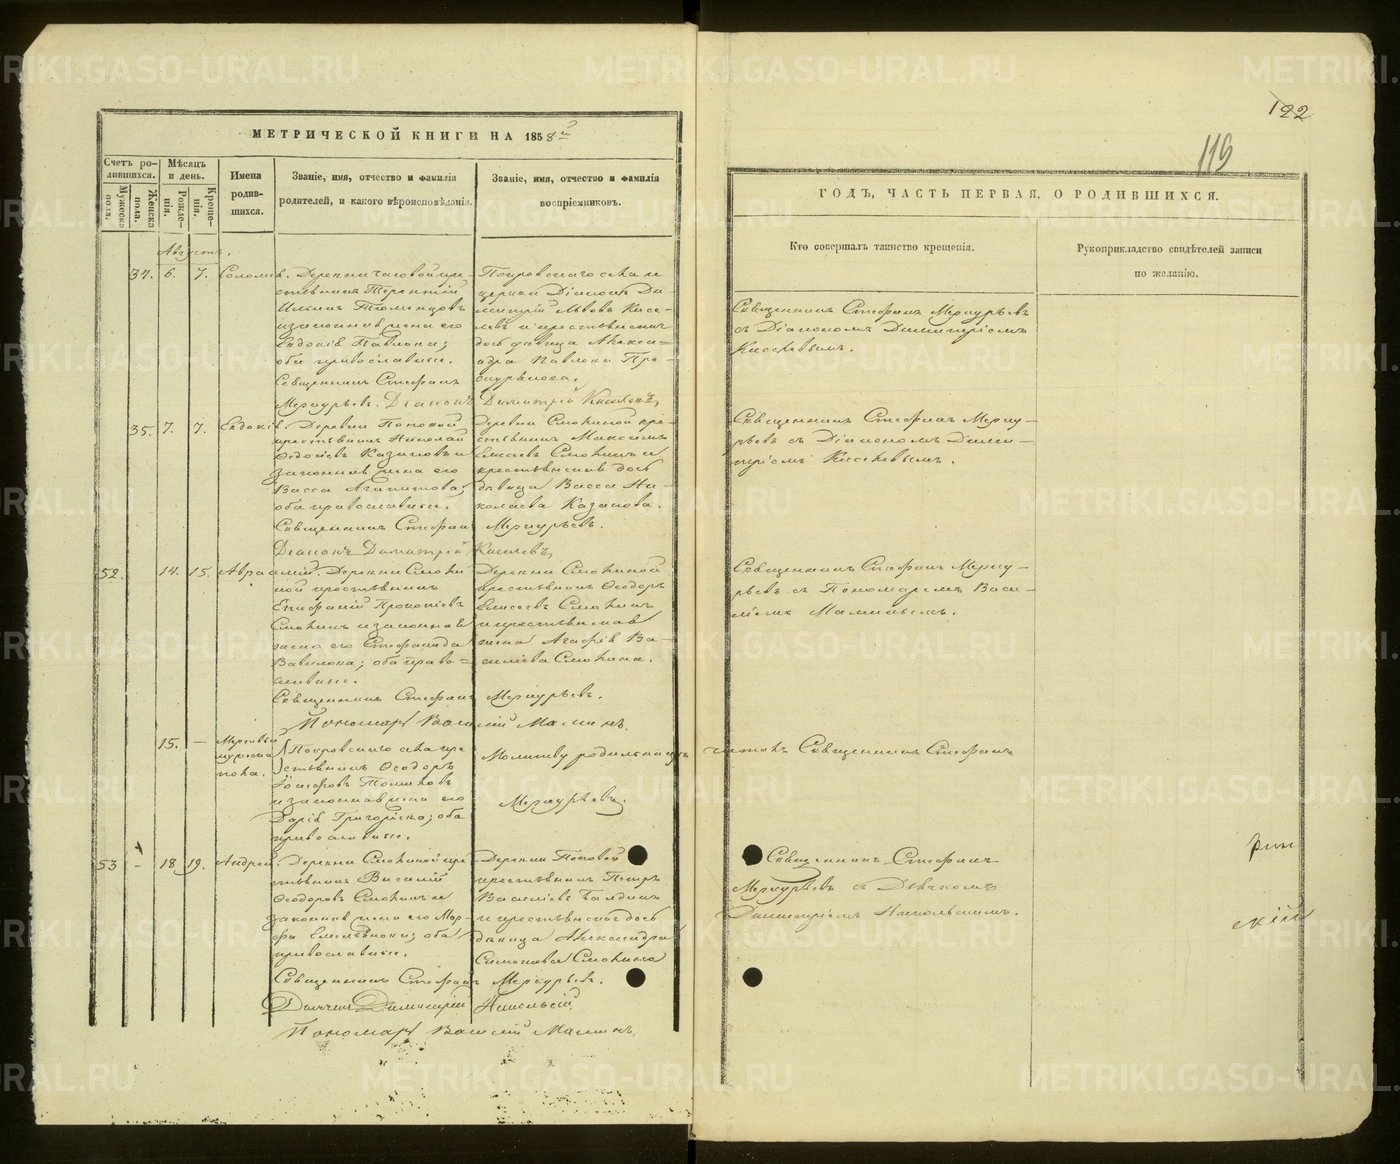 122
119
МЕТРИЧЕСКОЙ КНИГИ НА 1858й
Счетъ родившихся.
Мужеска пола.
Женска пола.
Мѣсяцъ и день.
Рожденія.
Крещенія.
Имена родившихся.
Званіе, имя, отчество и фамилія родителей, и какого вѣроисповѣданія.
Званіе, имя, отчество и фамилія воспріемниковъ.
ГОДЪ, ЧАСТЬ ПЕРВАЯ, О РОДИВШИХСЯ.
Кто совершалъ таинство крещенія.
Рукоприкладство свидѣтелей записи по желанію.
Августъ.
34. 6. 7.
Деревни Часовой кре-
стьянинъ Терентій
и законная жена его
Евдокія Павлова;
оба православные.
Священникъ Стефанъ
Меркурьевъ. Діаконъ Димитрій Киселевъ,
Покровскаго села
церкви Діаконъ Ди-
митрій Львовъ Кисе-
левъ и крестьянская
дочь дѣвица Алекса-
ндра Павлова Про-
скурякова.
Священникъ Стефанъ Меркурьевъ
съ Діакономъ Димитріемъ
Киселевымъ.
35. 7. 7. Евдокія.
Деревни Поповой
крестьянинъ Николай
Ѳедосѣевъ Казаковъ и
законная жена его
Васса Агапитова;
оба православные.
Священникъ Стефанъ Меркурьевъ.
Діаконъ Димитрій Киселевъ,
Деревни Смокиной кре-
стьянинъ Максимъ
Елисеевъ Смокинъ и
крестьянская дочь
дѣвица Васса Ни-
колаева Казакова.
Священникъ Стефанъ Мерку-
рьевъ съ Діакономъ Дими-
тріемъ Киселевымъ.
52. 14. 15. Авраамій.
Деревни Смоки-
ной крестьянинъ
Епифаній Прокопіевъ
Смокинъ и законная
жена его Стефанида
Вавилова; оба право-
славные.
Священникъ Стефанъ Меркурьевъ.
Пономарь Василій Маминъ
Деревни Смокиной
крестьянинъ Ѳеодоръ
Елисеевъ Смокинъ
и крестьянская
жена Агафія Ва-
силіева Смокина.
Священникъ Стефанъ Мерку-
рьевъ съ Пономаремъ Васи-
ліемъ Маминымъ.
15. —
Мертвый
мужеска
пола.
Покровскаго села кре-
стьянинъ Ѳеодоръ
и законная жена его
Дарія Григорьева; оба
православные.
Молитву родильницѣ
читалъ Священникъ Стефанъ
Меркурьевъ.
53 - 18 19. Андрей.
Деревни Смокиной кре-
стьянинъ Василій
Ѳеодоровъ Смокинъ и
законная жена его Мар-
фа Емельянова; оба
православные.
Священникъ Стефанъ Меркурьевъ.
Дьячекъ Димитрій Никольскій.
Пономарь Василій Маминъ.
Деревни Поповой
крестьянинъ Петръ
и крестьянская дочь
дѣвица Александра
Симонова Смокина
Священникъ Стефанъ
Меркурьевъ съ Дьячкомъ
Димитріемъ Никольскимъ.
METRIKI.GASO-URAL.RU